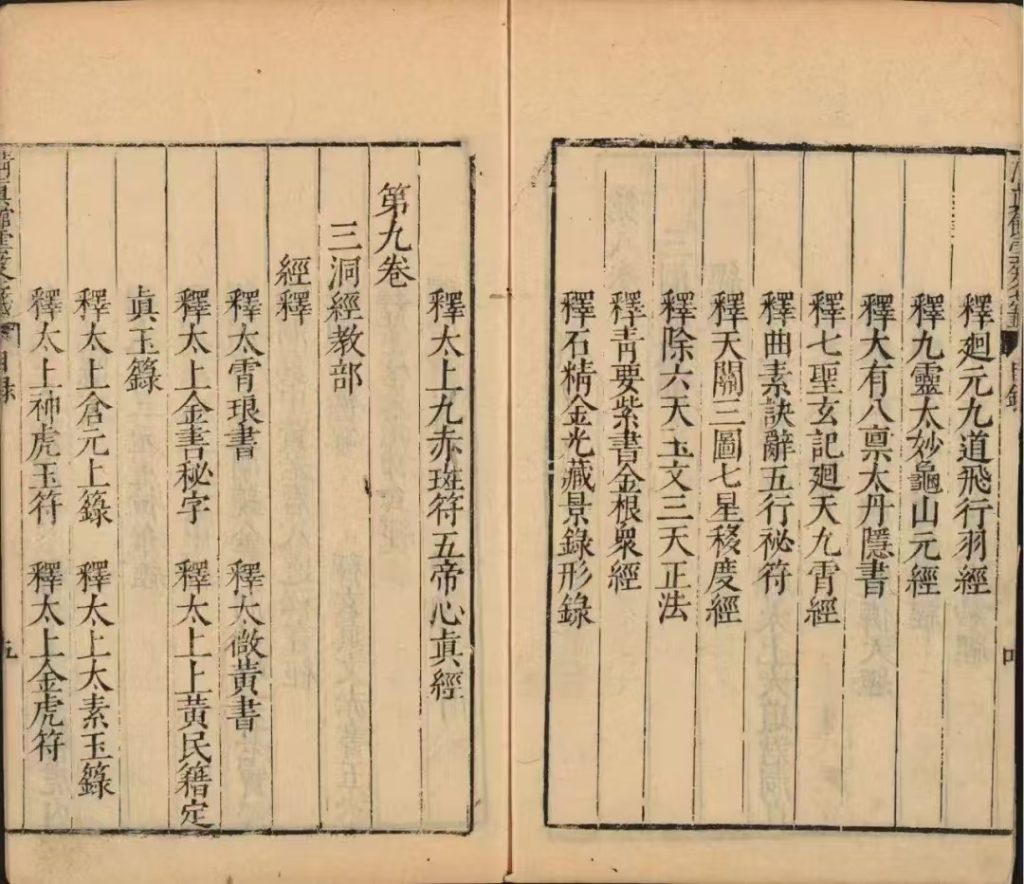 釋廻元九道飛行羽經
釋九靈太妙龜山元經
釋大有八禀太丹隱書
釋七聖玄記廻天九霄經
釋曲素訣辭五行秘符
釋天關三圖七星移度經
釋除六天玉文三天正法
釋青要紫書金根衆經
釋石精金光藏景錄形錄
釋太上九赤班符五帝心眞經
第九卷
三洞經教部
經釋
釋太霄琅書 釋太微黃書
釋太上金書秘字 釋太上上黃民籍定
眞玉籙
釋太上倉元上籙 釋太上太素玉籙
釋太上神虎玉符 釋太上金虎符
目錄
五